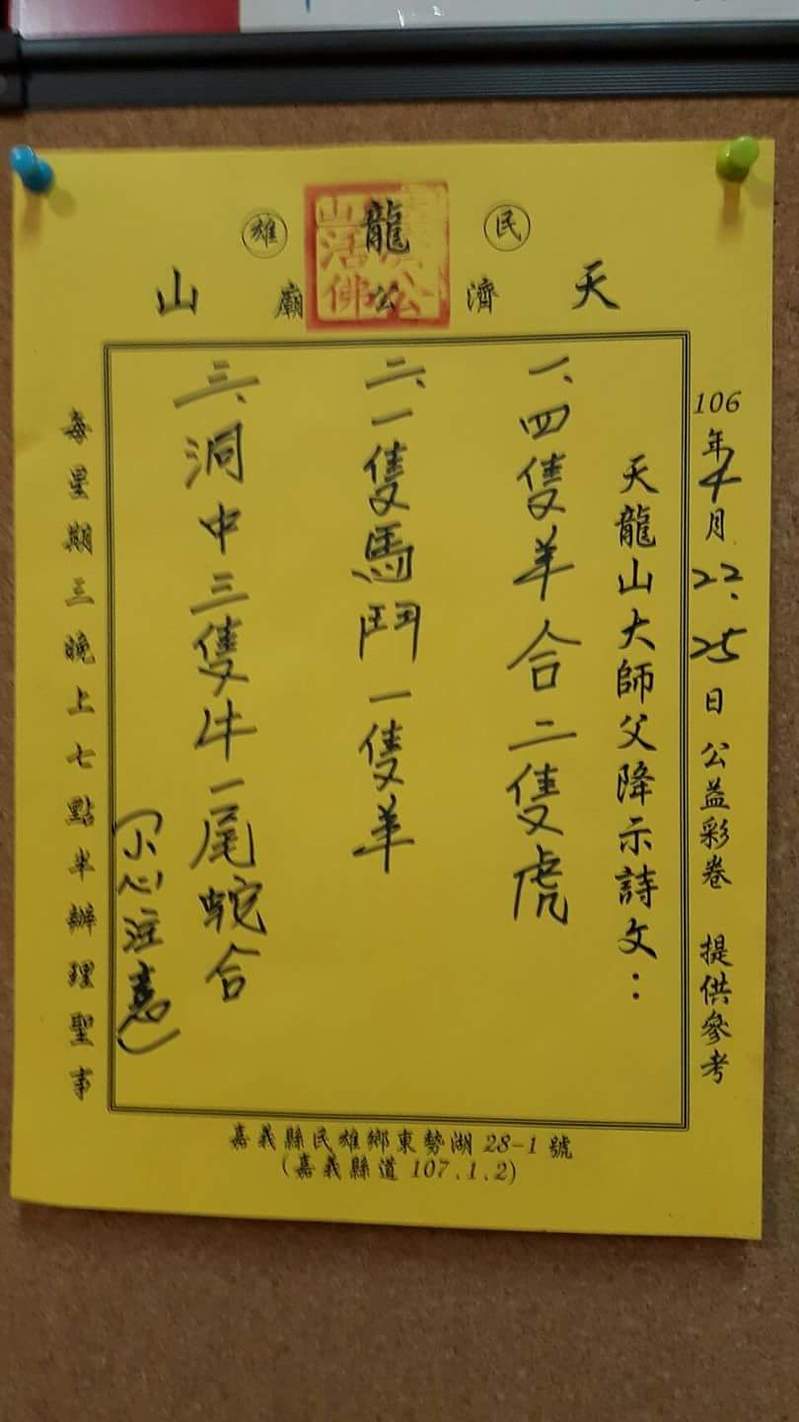 民雄
天龍山
濟公廟
106年4月22、25日公益彩卷 提供參考
天龍山大師父降示詩文：
一、四隻羊合二隻虎
二、一隻馬鬥一隻羊
三、洞中三隻牛一尾蛇合
（小心注意）
每星期三晚上七點半辦理聖事
嘉義縣民雄鄉東勢湖28-1號
(嘉義縣道107.1.2)